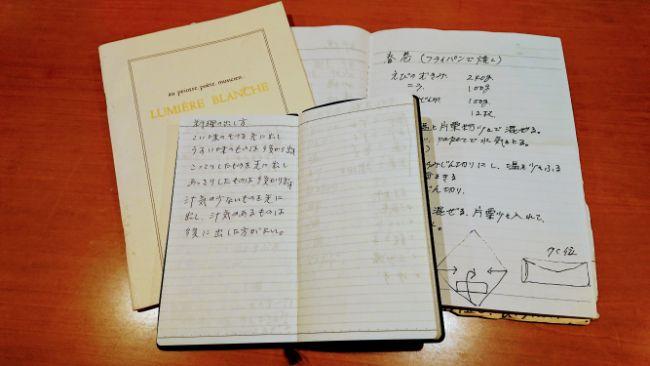 au peintre, poète, musicien.
LUMIÈRE BLANCHE
料理の出し方
こい味のものを先に出し
うすい味のものは後から出す
こってりしたものを先に出し
あっさりしたものは後から出す
汁気の少ないものを先に
出し、汁気のあるものは
後に出した方がよい。
春巻(フライパンで焼く)
えびのむきみ 240g
ニラ 100g
100g
12枚
塩と片栗粉少々で混ぜる。
水気をとる。
みじん切りにし、塩少々ふる
混ぜる、片栗少々入れて、